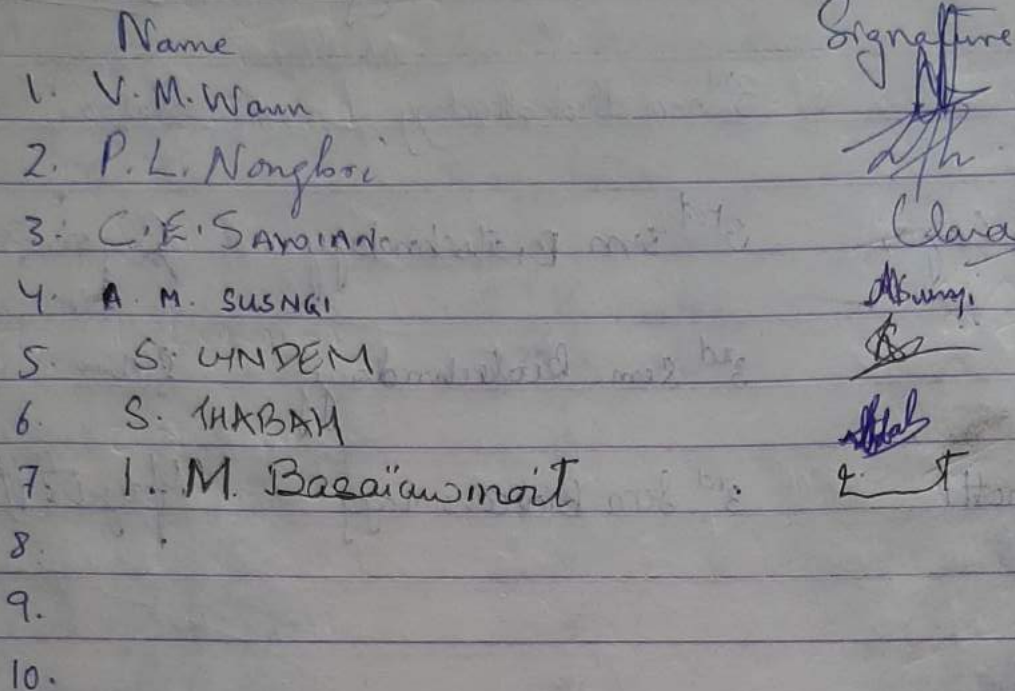 Name Signature
1. V. M. Wann
2. P. L. Nongbri
3. C. E. SAWIAN Clara
4. A. M. SUSNGI ASusngi
5. S. LYNDEM
6. S. THABAH
7. I. M. Basaïawmoit
8.
9.
10.